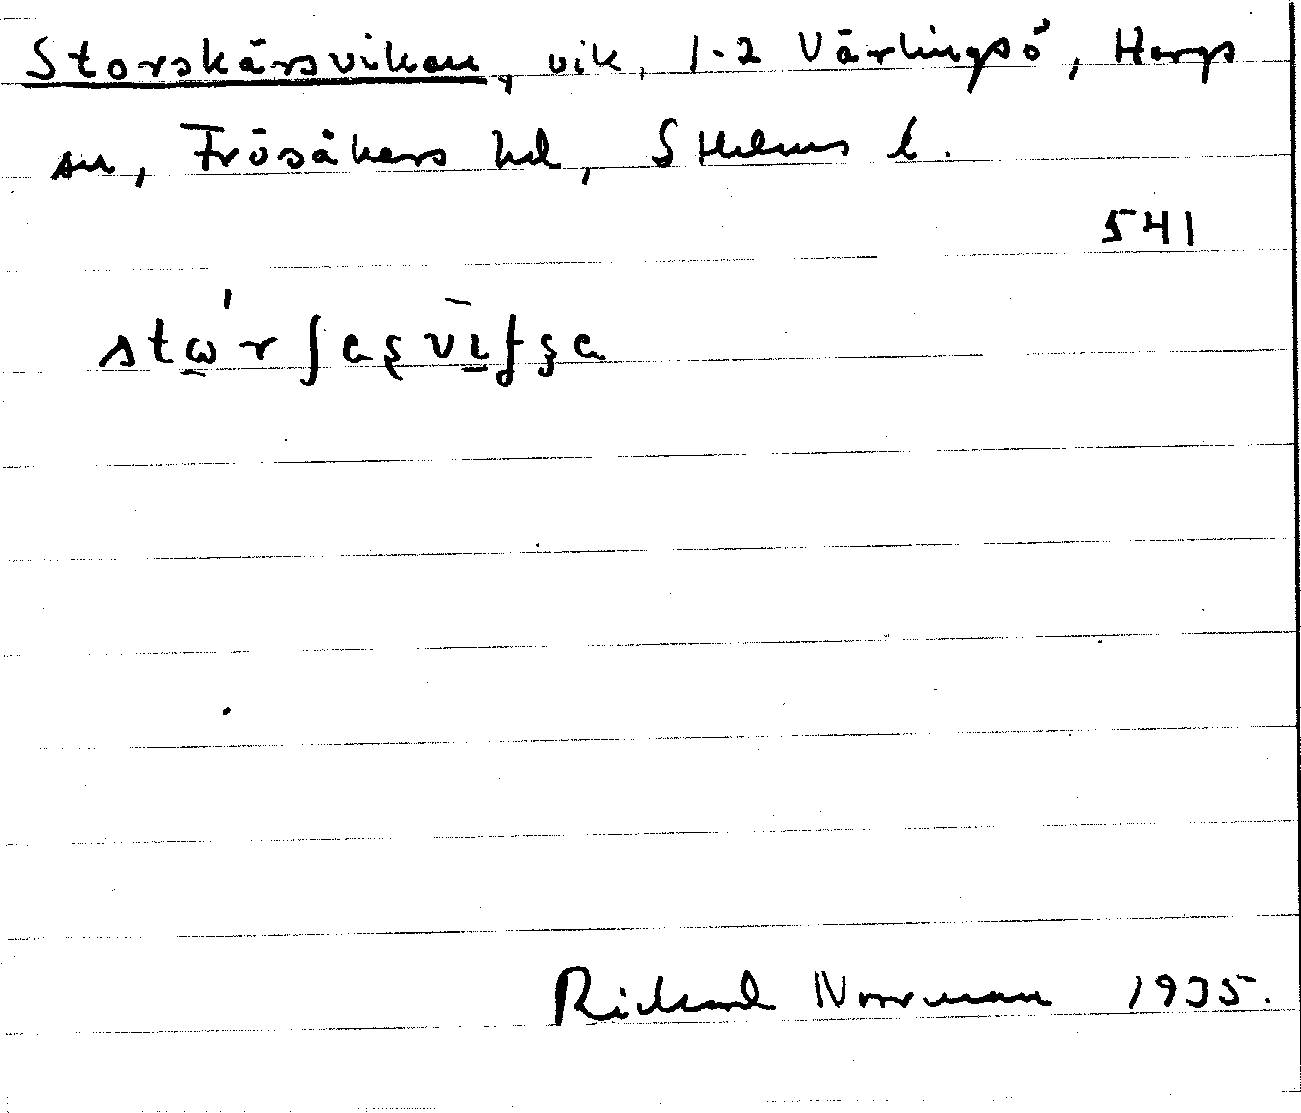 Storskärsvikan, vik, 1-2 Värlingsö, Hargs
sn, Frösåkers hd, Sthlms l.
541
Rickard Norrman 1935.